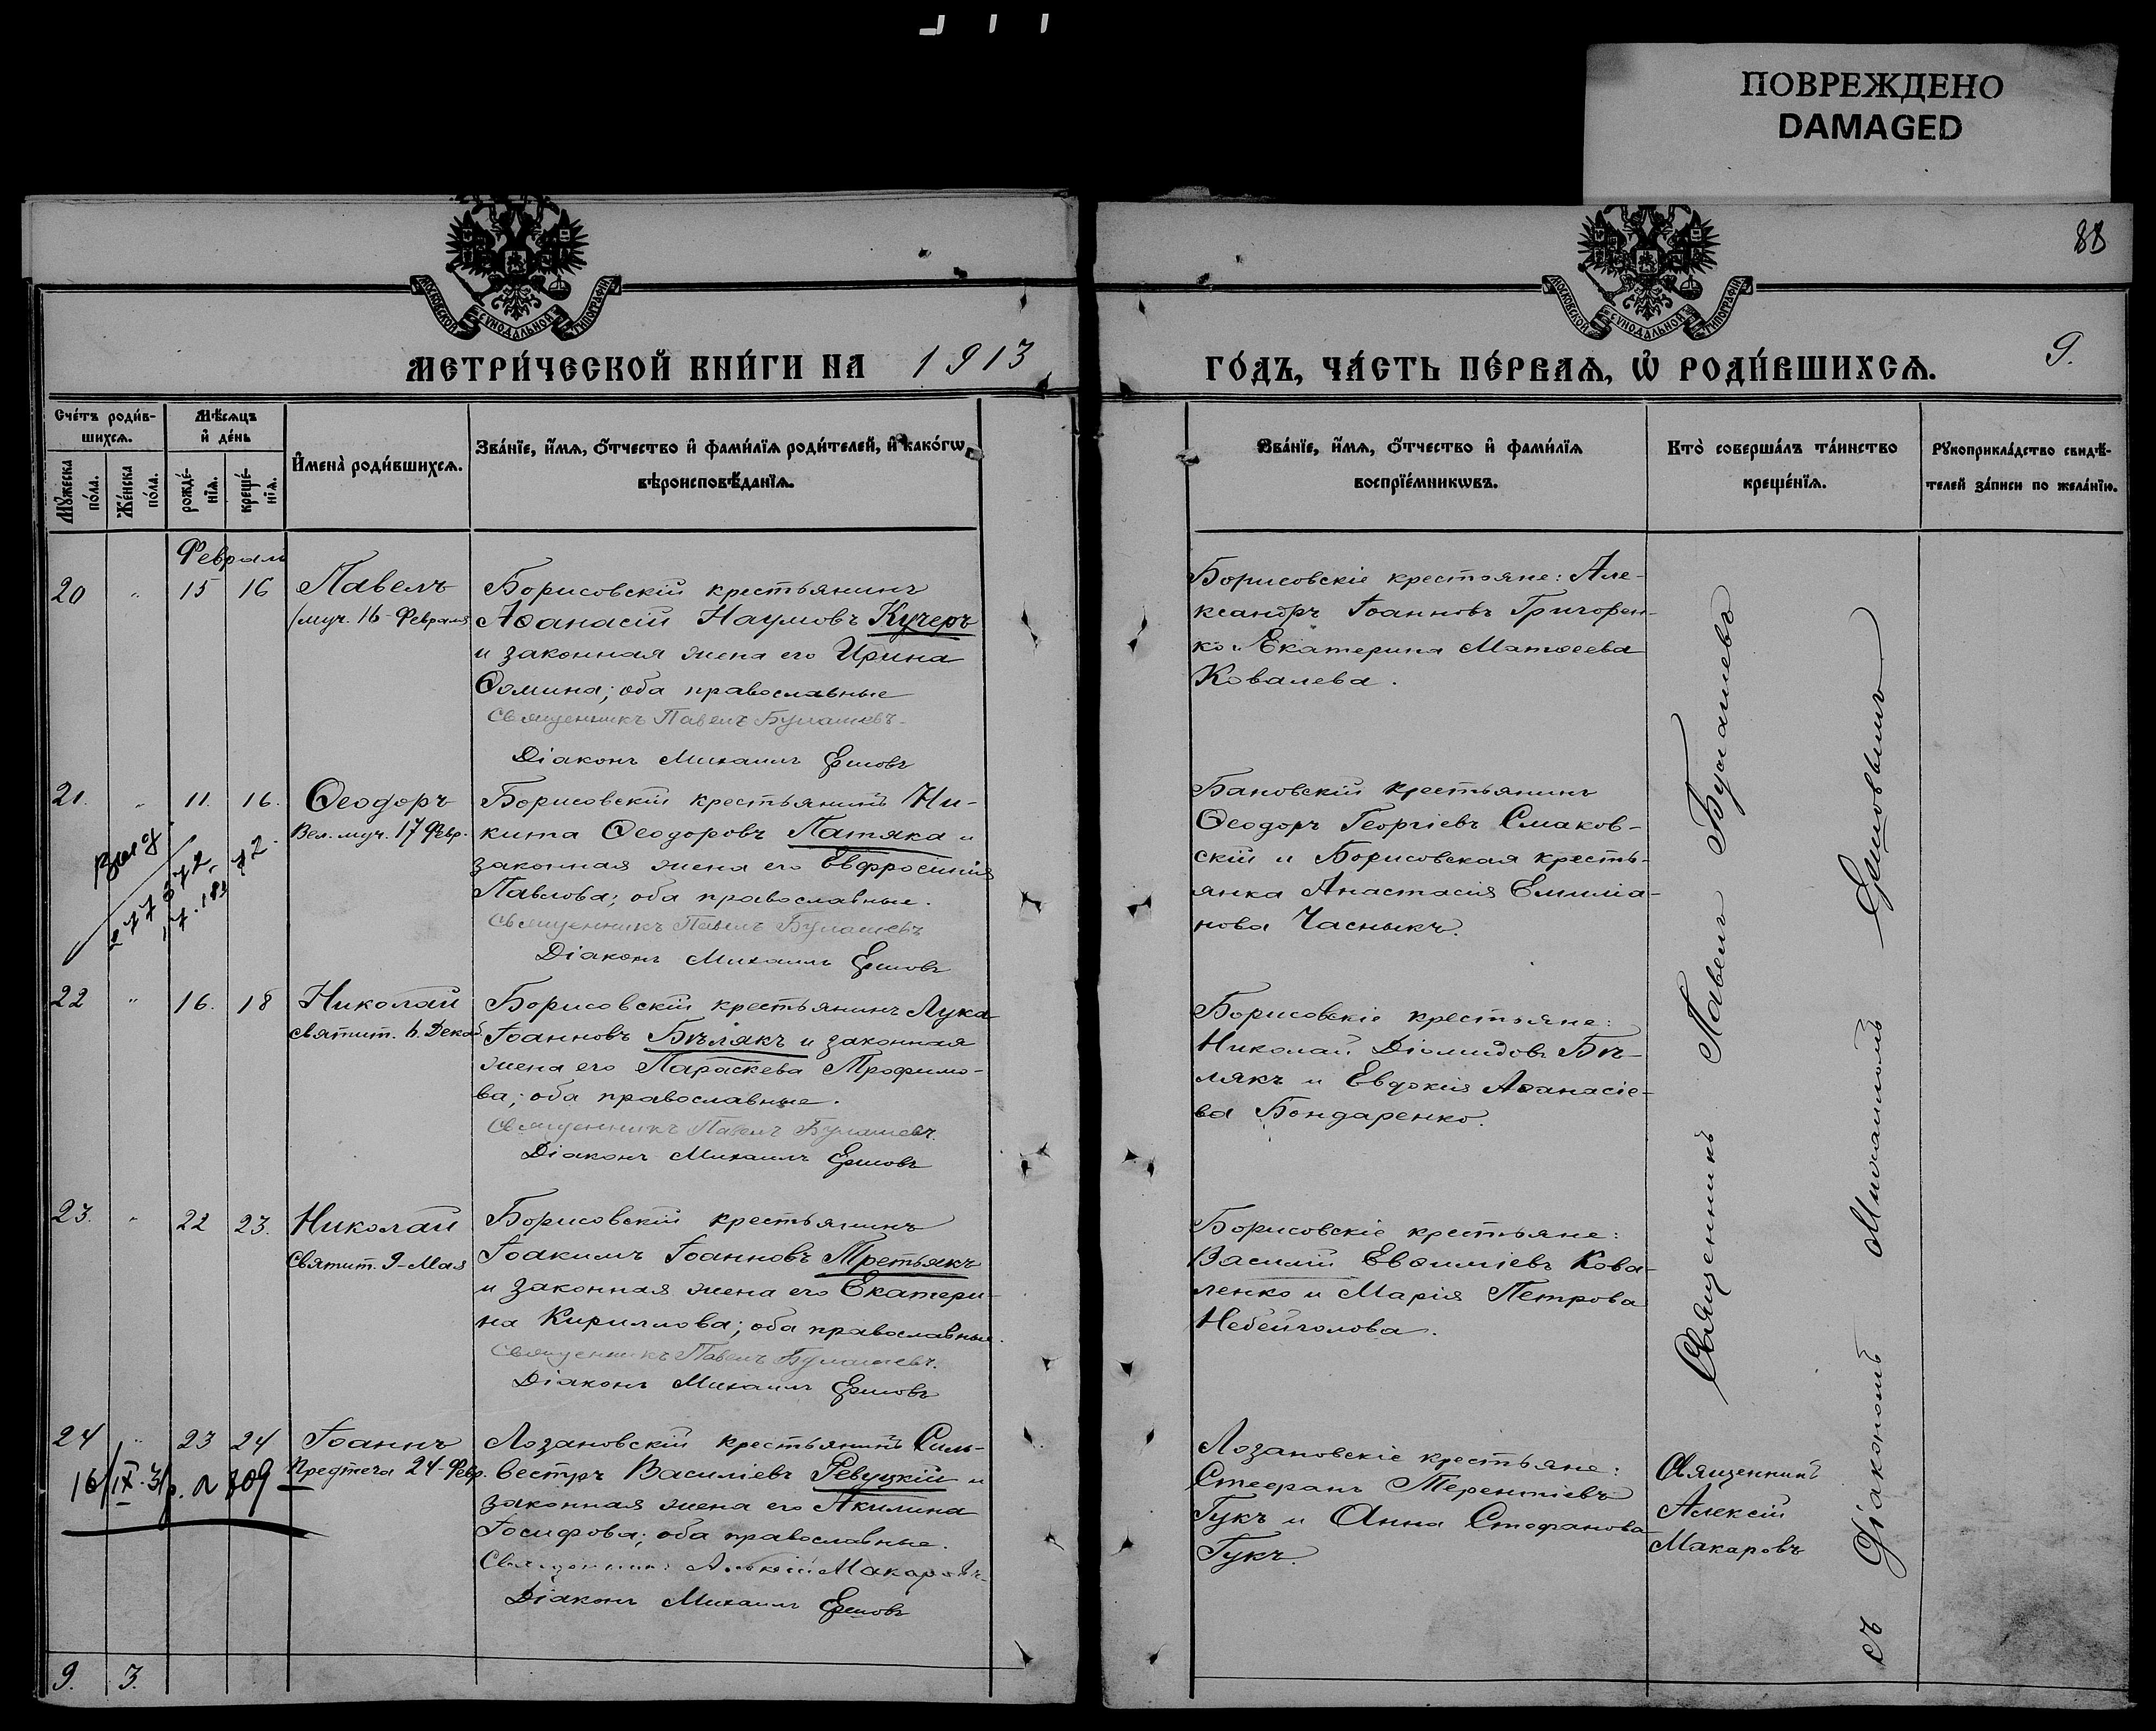 ПОВРЕЖДЕНО
DAMAGED
88
МОСКОВСКОЙ СУНОДАЛЬНОЙ ТИПОГРАФІИ
МОСКОВСКОЙ СУНОДАЛЬНОЙ ТИПОГРАФІИ
МЕТРИ́ЧЕСКОЙ КНИ́ГИ НА 1913
ГО́ДЪ, ЧА́СТЬ ПЕ́РВАѦ, Ѡ҆ РОДИ́ВШИХСѦ. 9.
Сче́тъ роди́в-
шихсѧ.
Мѣ́сѧцъ
и҆ де́нь
Мꙋ́жеска
по́ла.
Же́нска
по́ла.
рожде́-
нїѧ.
креще́-
нїѧ.
И҆мена̀ роди́вшихсѧ.
Зва́нїе, и҆́мѧ, ѻ҆́тчество и҆ фами́лїѧ роди́телей, и҆ како́гѡ
вѣроисповѣ́данїѧ.
Зва́нїе, и҆́мѧ, ѻ҆́тчество и҆ фами́лїѧ
воспрїе́мникѡвъ.
Кто̀ соверша́лъ та́инство
креще́нїѧ.
Рꙋкоприкла́дство свидѣ́-
телей за́писи по жела́нїю.
Февраль
20 „ 15 16 Павелъ
муч. 16 Февраля
Борисовскій крестьянинъ
Аѳанасій Наумовъ Кучеръ
и законная жена его Ирина
Ѳомина; оба православные
Священникъ Павелъ Булашевъ.
Діаконъ Михаилъ Ершовъ
Борисовскіе крестьяне: Але-
ксандръ Іоанновъ Григорен-
ко и Екатерина Матѳеева
Ковалева.
21. „ 11. 16. Ѳеодоръ
Вел. муч. 17 Февр.
Борисовскій крестьянинъ Ни-
кита Ѳеодоровъ Патяка и
законная жена его Евфросинія
Павлова; оба православные.
Священникъ Павелъ Булашевъ
Діаконъ Михаилъ Ершовъ
Бановскій крестьянинъ
Ѳеодоръ Георгіевъ Смаков-
скій и Борисовская кресть-
янка Анастасія Емиліа-
нова Часныкъ.
22 „ 16. 18 Николай
святит. 6 Декаб.
Борисовскій крестьянинъ Лука
Іоанновъ Бѣлякъ и законная
жена его Параскева Трофимо-
ва; оба православные.
Священникъ Павелъ Булашевъ.
Діаконъ Михаилъ Ершовъ
Борисовскіе крестьяне:
Николай Діомидовъ Бѣ-
лякъ и Евдокія Аѳанасіе-
ва Бондаренко.
23. „ 22 23. Николай
Святит. 9 Мая
Борисовскій крестьянинъ
Іоакимъ Іоанновъ Третьякъ
и законная жена его Екатери-
на Кириллова; оба православные.
Священникъ Павелъ Булашевъ.
Діаконъ Михаилъ Ершовъ
Борисовскіе крестьяне:
Василій Евѳиміевъ Кова-
ленко и Марія Петрова
Небейголова.
24 „ 23 24 Іоаннъ
Предтеча 24 Февр.
Лозановскій крестьянинъ Силь-
вестръ Василіевъ Ревуцкій и
законная жена его Акилина
Іосифова; оба православные.
Священникъ Алексій Макаровъ.
Діаконъ Михаилъ Ершовъ
Лозановскіе крестьяне:
Стефанъ Терентіевъ
Гукъ и Анна Стефанова
Гукъ.
Священникъ
Алексій
Макаровъ
Священникъ Павелъ Булашевъ
съ Діакономъ Михаиломъ Ершовымъ
9. 3.